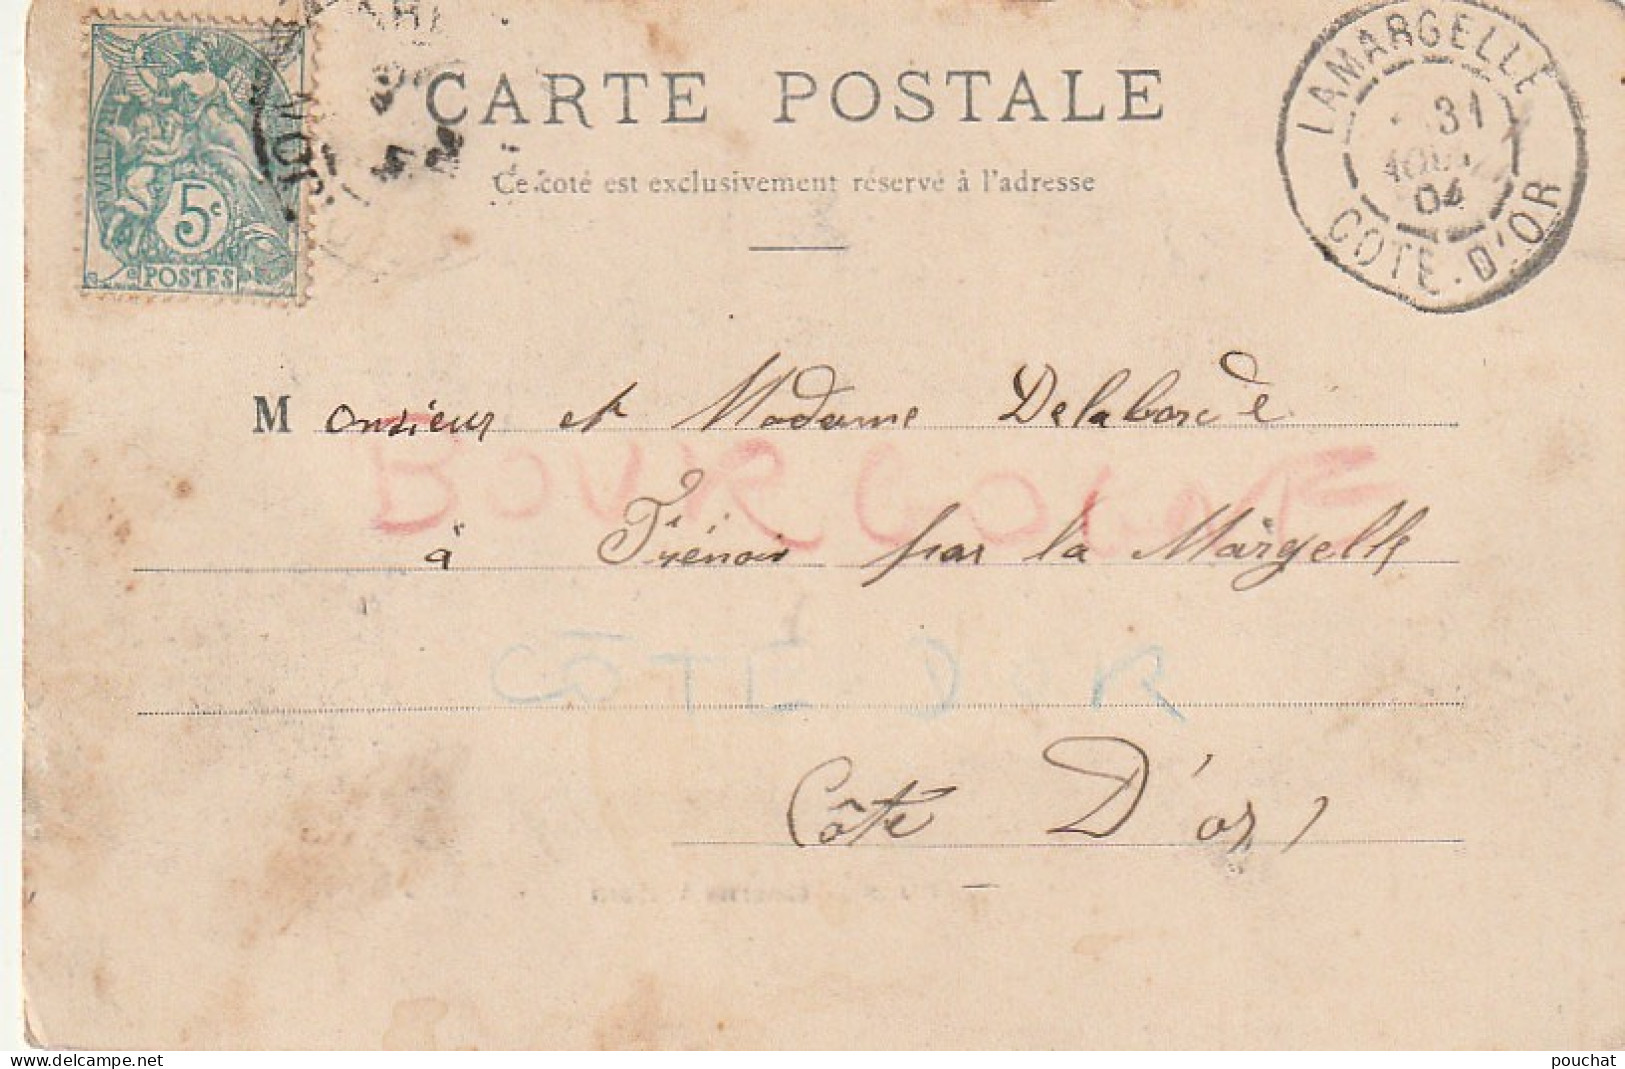 CARTE POSTALE
Ce côté est exclusivement réservé à l'adresse
5c
POSTES
LAMARGELLE
31
AOUT
04
COTE-D'OR
Monsieur et Madame Delaborde
BOURGOGNE
à Frénois par la Margelle
CÔTE D'OR
Côte D'or
delcampe.net
pouchat